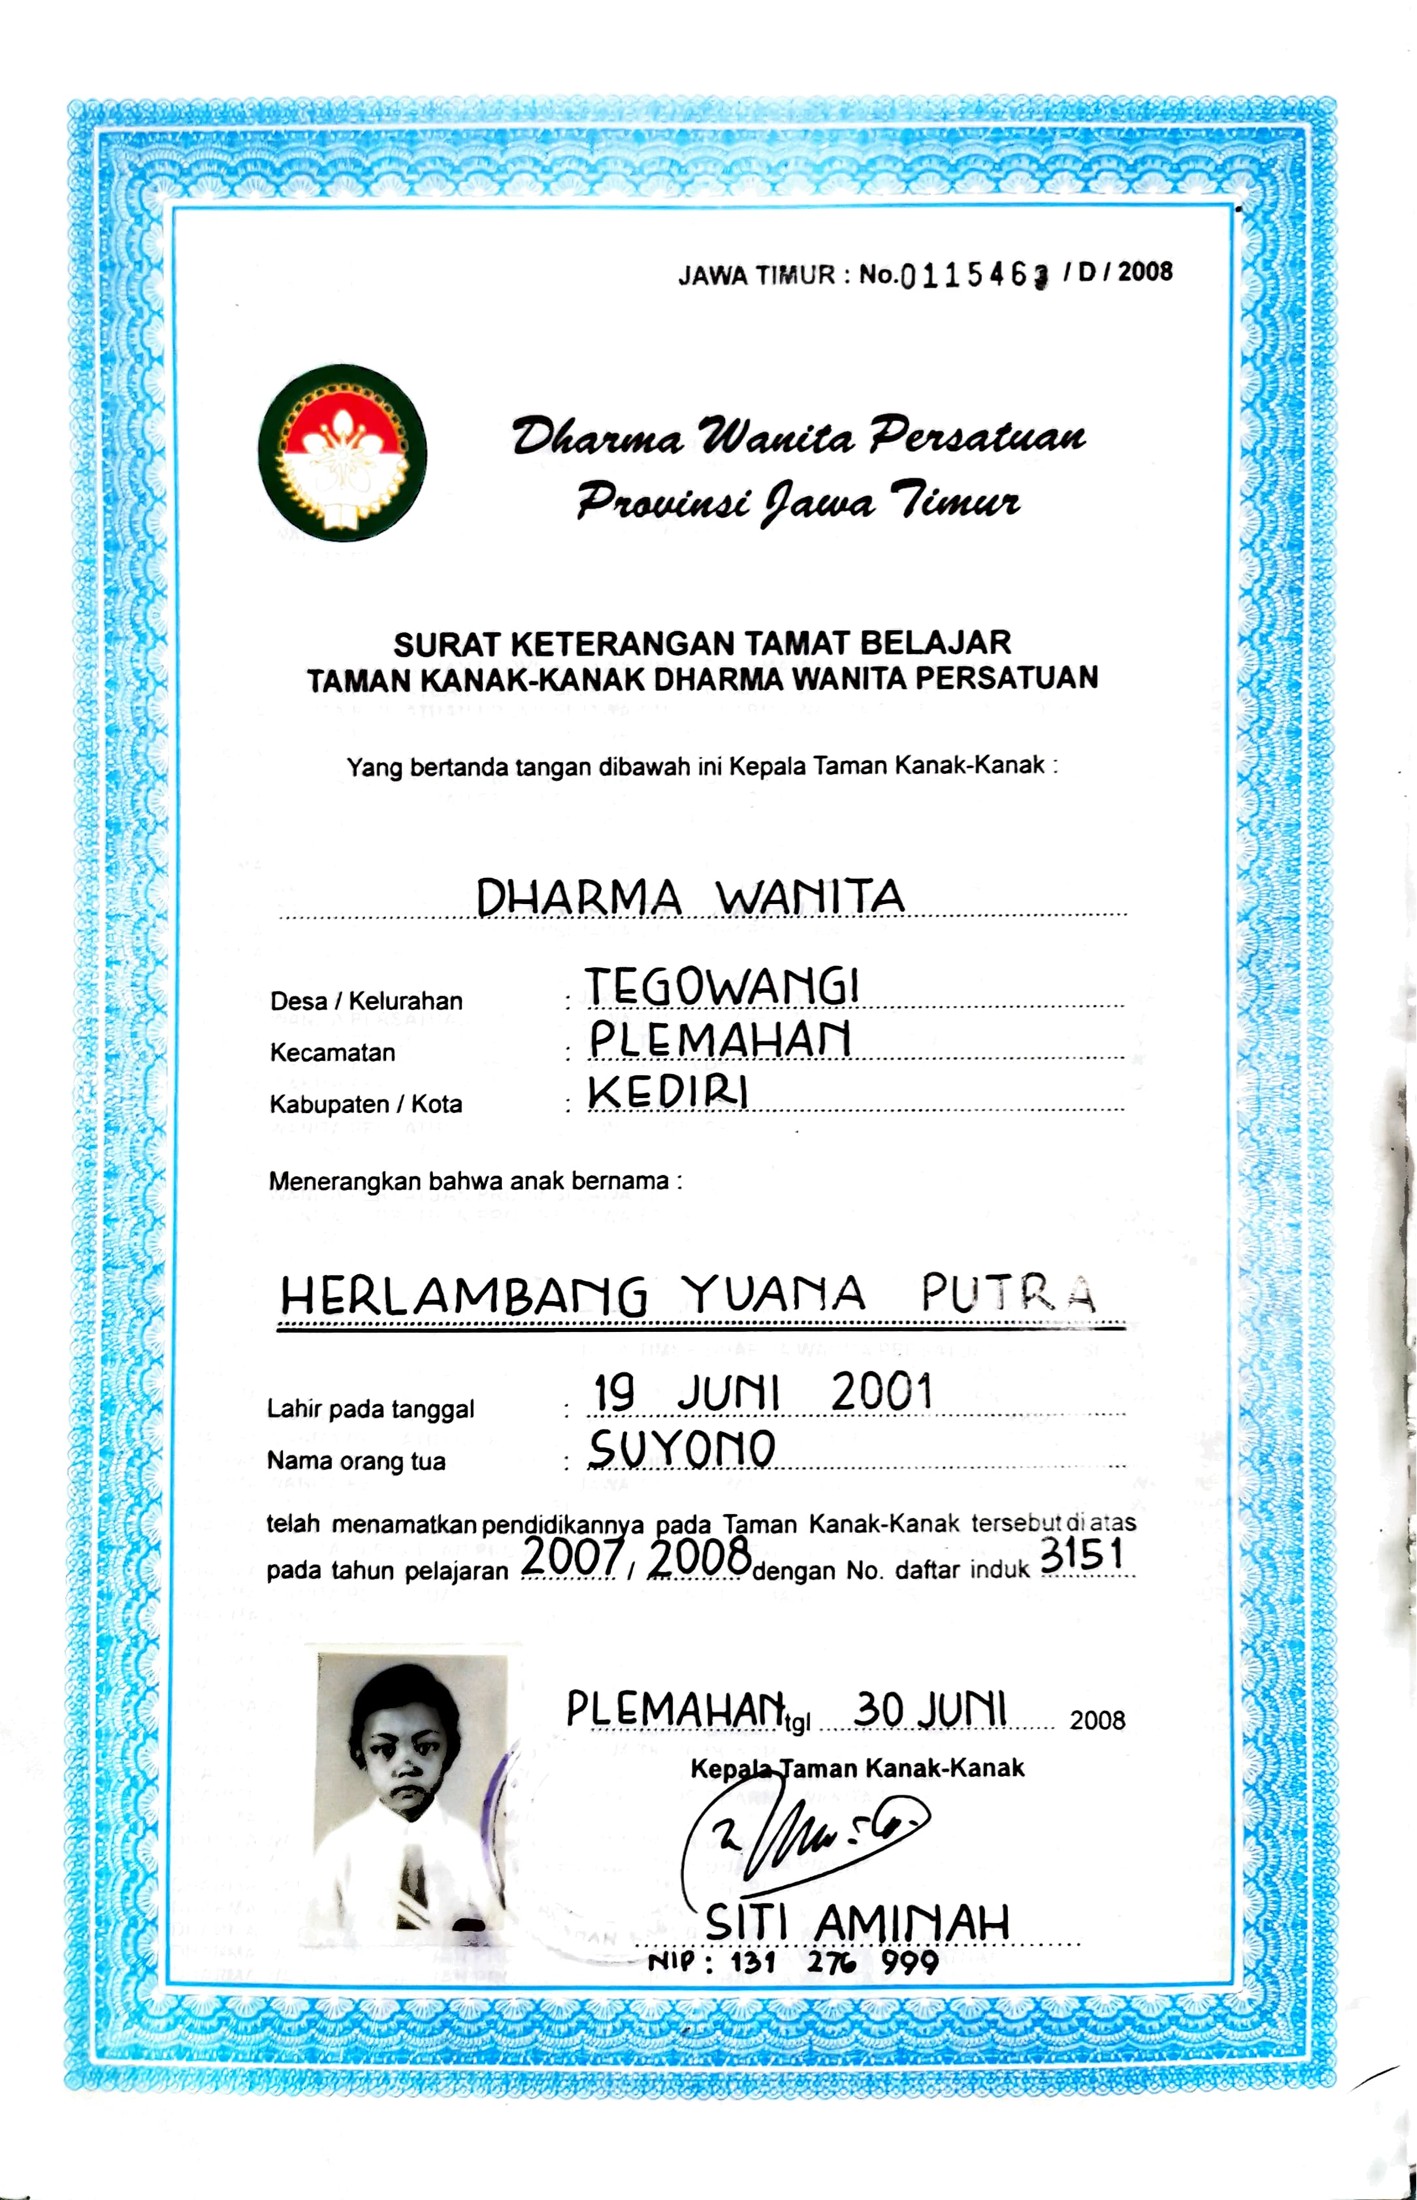 JAWA TIMUR : No.0115463 / D / 2008
Dharma Wanita Persatuan
Provinsi Jawa Timur
SURAT KETERANGAN TAMAT BELAJAR
TAMAN KANAK-KANAK DHARMA WANITA PERSATUAN
Yang bertanda tangan dibawah ini Kepala Taman Kanak-Kanak :
DHARMA WANITA
Desa / Kelurahan : TEGOWANGI
Kecamatan : PLEMAHAN
Kabupaten / Kota : KEDIRI
Menerangkan bahwa anak bernama :
HERLAMBANG YUANA PUTRA
Lahir pada tanggal : 19 JUNI 2001
Nama orang tua : SUYONO
telah menamatkan pendidikannya pada Taman Kanak-Kanak tersebut di atas
pada tahun pelajaran 2007 / 2008 dengan No. daftar induk 3151
PLEMAHAN tgl 30 JUNI 2008
Kepala Taman Kanak-Kanak
SITI AMINAH
NIP : 131 276 999